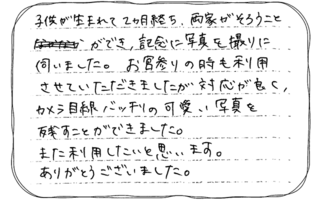 子供が生まれて2ヵ月経ち、両家がそろうこと
ができ、記念に写真を撮りに
伺いました。お宮参りの時も利用
させていただきましたが対応が良く、
カメラ目線バッチリの可愛い写真を
残すことができました。
また利用したいと思います。
ありがとうございました。